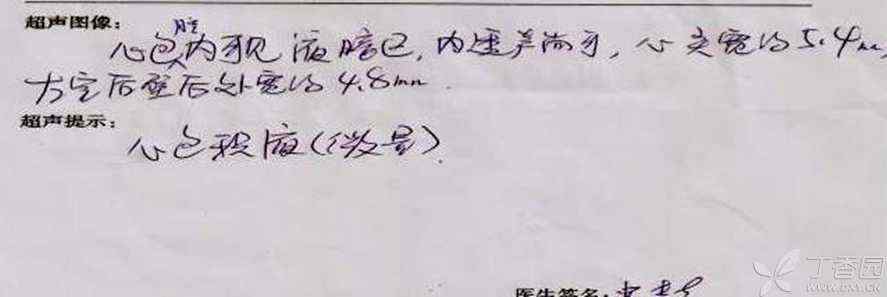 超声图像：
心包腔内可见液暗区，内透声尚可，心尖宽约5.4mm，
左室后壁后处宽约4.8mm.
超声提示：
心包积液（微量）
医生签名：
丁香园
WWW.DXY.CN